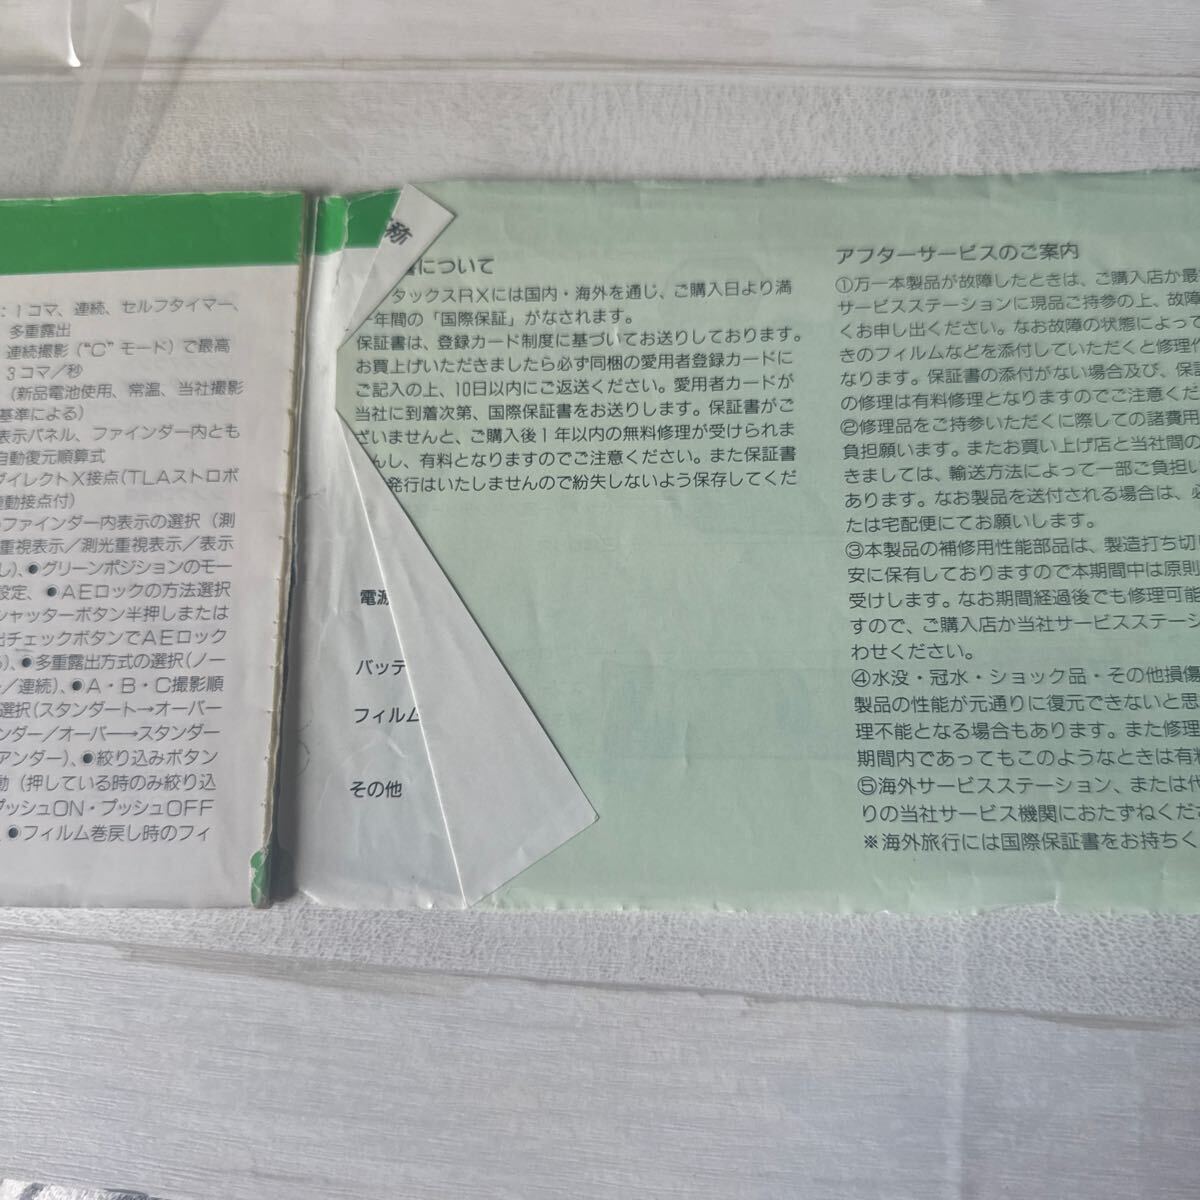 ：1コマ、連続、セルフタイマー、
多重露出
連続撮影（“C”モード）で最高
3コマ／秒
（新品電池使用、常温、当社撮影
基準による）
表示パネル、ファインダー内とも
自動復元順算式
ダイレクトX接点（TLAストロボ
連動接点付）
ファインダー内表示の選択（測
重視表示／測光重視表示／表示
し）、●グリーンポジションのモー
設定、●AEロックの方法選択
シャッターボタン半押しまたは
出チェックボタンでAEロック
、●多重露出方式の選択（ノー
／連続）、●A・B・C撮影順
選択（スタンダート→オーバー
ンダー／オーバー→スタンダー
アンダー）、●絞り込みボタン
動（押している時のみ絞り込
プッシュON・プッシュOFF
●フィルム巻戻し時のフィ
称
電源
バッテ
フィルム
その他
書について
タックスRXには国内・海外を通じ、ご購入日より満
一年間の「国際保証」がなされます。
保証書は、登録カード制度に基づいてお送りしております。
お買上げいただきましたら必ず同梱の愛用者登録カードに
ご記入の上、10日以内にご返送ください。愛用者カードが
当社に到着次第、国際保証書をお送りします。保証書がご
ざいませんと、ご購入後1年以内の無料修理が受けられま
んし、有料となりますのでご注意ください。また保証書
発行はいたしませんので紛失しないよう保存してくだ
アフターサービスのご案内
①万一本製品が故障したときは、ご購入店か最
サービスステーションに現品ご持参の上、故障
くお申し出ください。なお故障の状態によって
きのフィルムなどを添付していただくと修理作
なります。保証書の添付がない場合及び、保証
の修理は有料修理となりますのでご注意くだ
②修理品をご持参いただくに際しての諸費用
負担願います。またお買い上げ店と当社間の
きましては、輸送方法によって一部ご負担い
あります。なお製品を送付される場合は、必
たは宅配便にてお願いします。
③本製品の補修用性能部品は、製造打ち切り
安に保有しておりますので本期間中は原則
受けします。なお期間経過後でも修理可能
すので、ご購入店か当社サービスステーシ
わせください。
④水没・冠水・ショック品・その他損傷
製品の性能が元通りに復元できないと思
理不能となる場合もあります。また修理
期間内であってもこのようなときは有料
⑤海外サービスステーション、または代
りの当社サービス機関におたずねくださ
※海外旅行には国際保証書をお持ちく